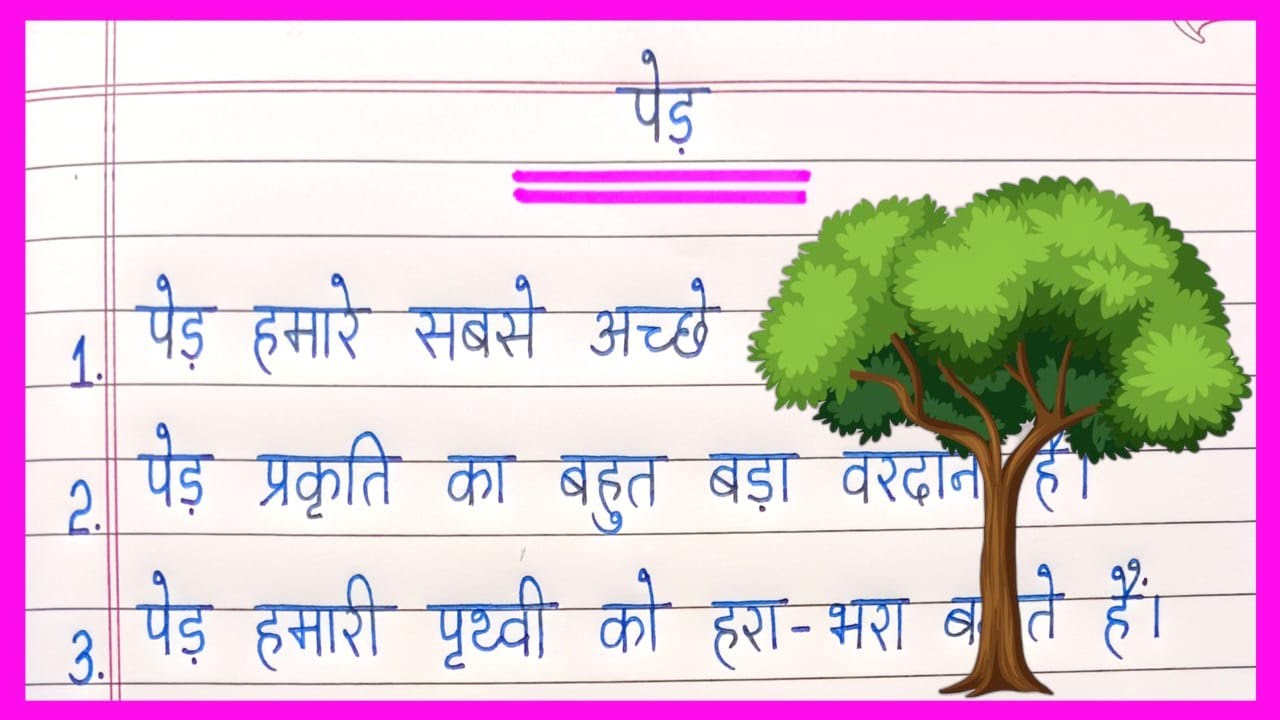 पेड़
1. पेड़ हमारे सबसे अच्छे
2. पेड़ प्रकृति का बहुत बड़ा वरदान है।
3. पेड़ हमारी पृथ्वी को हरा-भरा हैं।